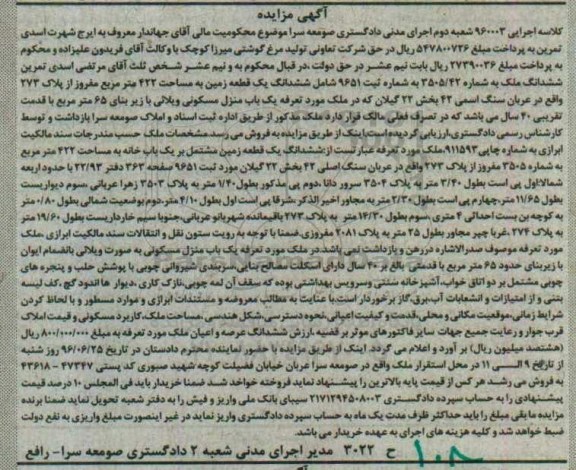 آگهی مزایده
کلاسه اجرایی ۹۶۰۰۰۳ شعبه دوم اجرای مدنی دادگستری صومعه سرا موضوع محکومیت مالی آقای جهاندار معروف به ایرج شهرت اسدی
تمرین به پرداخت مبلغ ۵۴۷۸۰۰۷۲۶ ریال در حق شرکت تعاونی تولید مرغ گوشتی میرزا کوچک با وکالت آقای فریدون علیزاده و محکوم
به پرداخت مبلغ ۲۷۳۹۰۰۳۶ ریال بابت نیم عشر در حق دولت ،در قبال محکوم به و نیم عشر شخص ثلث آقای مرتضی اسدی تمرین
ششدانگ ملک به شماره ۳۵۰۵/۴۲ به شماره ثبت ۹۶۵۱ شامل ششدانگ یک قطعه زمین به مساحت ۴۲۲ متر مربع مفروز از پلاک ۲۷۳
واقع در عربان سنگ اسمی ۴۲ بخش ۲۲ گیلان که در ملک مورد تعرفه یک باب منزل مسکونی ویلائی با زیر بنای ۶۵ متر مربع با قدمت
تقریبی ۴۰ سال می باشد که در تصرف فعلی مالک قرار دارد ملک مذکور از طریق اداره ثبت اسناد و املاک صومعه سرا بازداشت و توسط
کارشناس رسمی دادگستری،ارزیابی گردیده است.اینک از طریق مزایده به فروش می رسد.مشخصات ملک حسب مندرجات سند مالکیت
ابرازی به شماره چاپی ۹۱۱۵۹۳،ملک مورد تعرفه عبارتست از:ششدانگ یک قطعه زمین مشتمل بر یک باب خانه به مساحت ۴۲۲ متر مربع
به شماره ۳۵۰۵ مفروز از پلاک ۲۷۳ واقع در عربان سنگ اصلی ۴۲ بخش ۲۲ گیلان مورد ثبت ۹۶۵۱ صفحه ۳۶۳ دفتر ۲۲/۹۳ با حدود اربعه
شمالا:اول پی است بطول ۳/۴۰ متر به پلاک ۳۵۰۴ سرور دانا ،دوم پی مذکور بطول ۱/۴۰ متر به پلاک ۳۵۰۳ زهرا عربانی ،سوم دیواریست
بطول ۱۱/۶۵ متر،چهارم پی است بطول ۲/۳۰ متر به مجاور اخیر الذکر ،شرقا پی است اول بطول ۴/۱۰ متر،دوم بوضعیت شمالی بطول ۰/۸۰ متر
به کوچه بن بست احداثی ۴ متری ،سوم بطول ۱۴/۳۰ متر به پلاک ۲۷۳ باقیمانده شهربانو عربانی،جنوبا سیم خارداریست بطول ۱۹/۶۰ متر
به پلاک ۲۷۴ ،غربا چپر مجاور بطول ۲۵ متر به پلاک ۲۰۸۱ مفروزی.ضمنا با توجه به رویت ستون نقل و انتقالات سند مالکیت ابرازی ،ملک
مورد تعرفه موصوف صدرالاشاره در رهن و بازداشت نمی باشد.در ملک مورد تعرفه یک باب منزل مسکونی به صورت ویلائی بانضمام ایوان
با زیربنای حدود ۶۵ متر مربع با قدمتی بالغ بر ۴۰ سال دارای اسکلت مصالح بنایی،سربندی شیروانی چوبی با پوشش حلب و پنجره های
چوبی مشتمل بر دو اتاق خواب،آشپزخانه سنتی وسرویس بهداشتی بوده که سقف آن لمه چوبی،نازک کاری ،دیوار ها اندود گچ ،کف لیسه
بتنی و از امتیازات و انشعابات آب،برق،گاز برخوردار است.با عنایت به مطالب معروضه و مستندات ابرازی و موارد مسطور و با لحاظ کردن
شرایط زمانی،موقعیت مکانی و محلی،قدمت و کیفیت اعیانی،نحوه دسترسی،شکل هندسی ،مساحت ملک،کاربرد مسکونی و قیمت املاک
قرب جوار و رعایت جمیع جهات سایر فاکتورهای موثر بر قضیه ،ارزش ششدانگ عرصه و اعیان ملک مورد تعرفه به مبلغ ۸۰۰/۰۰۰/۰۰۰ ریال
(هشتصد میلیون ریال) بر آورد و اعلام می گردد. اینک از طریق مزایده با حضور نماینده محترم دادستان در تاریخ ۹۶/۰۶/۲۵ روز شنبه
از تاریخ ۹ الی ۱۱ در محل استقرار ملک واقع در صومعه سرا عربان خیابان فضیلت کوچه شهید صبوری کد پستی ۴۷۳۴۷ – ۴۳۶۱۸
به فروش می رسد هر کس از قیمت پایه بالاترین را پیشنهاد نماید فروخته خواهد شد ضمنا خریدار باید فی المجلس ۱۰ درصد قیمت
پیشنهادی را به حساب سپرده دادگستری ۲۱۷۱۲۹۴۵۰۸۰۰۳ سیبای بانک ملی واریز و فیش را به دفتر شعبه تحویل نماید ضمنا برنده
مزایده ما بقی مبلغ را باید حداکثر ظرف مدت یک ماه به حساب سپرده دادگستری واریز نماید در غیر اینصورت مبلغ واریزی به نفع دولت
ضبط خواهد شد و کلیه هزینه های اجرای به عهده خریدار می باشد.
ح ۳۰۲۲ مدیر اجرای مدنی شعبه ۲ دادگستری صومعه سرا- رافع
۱۰۸